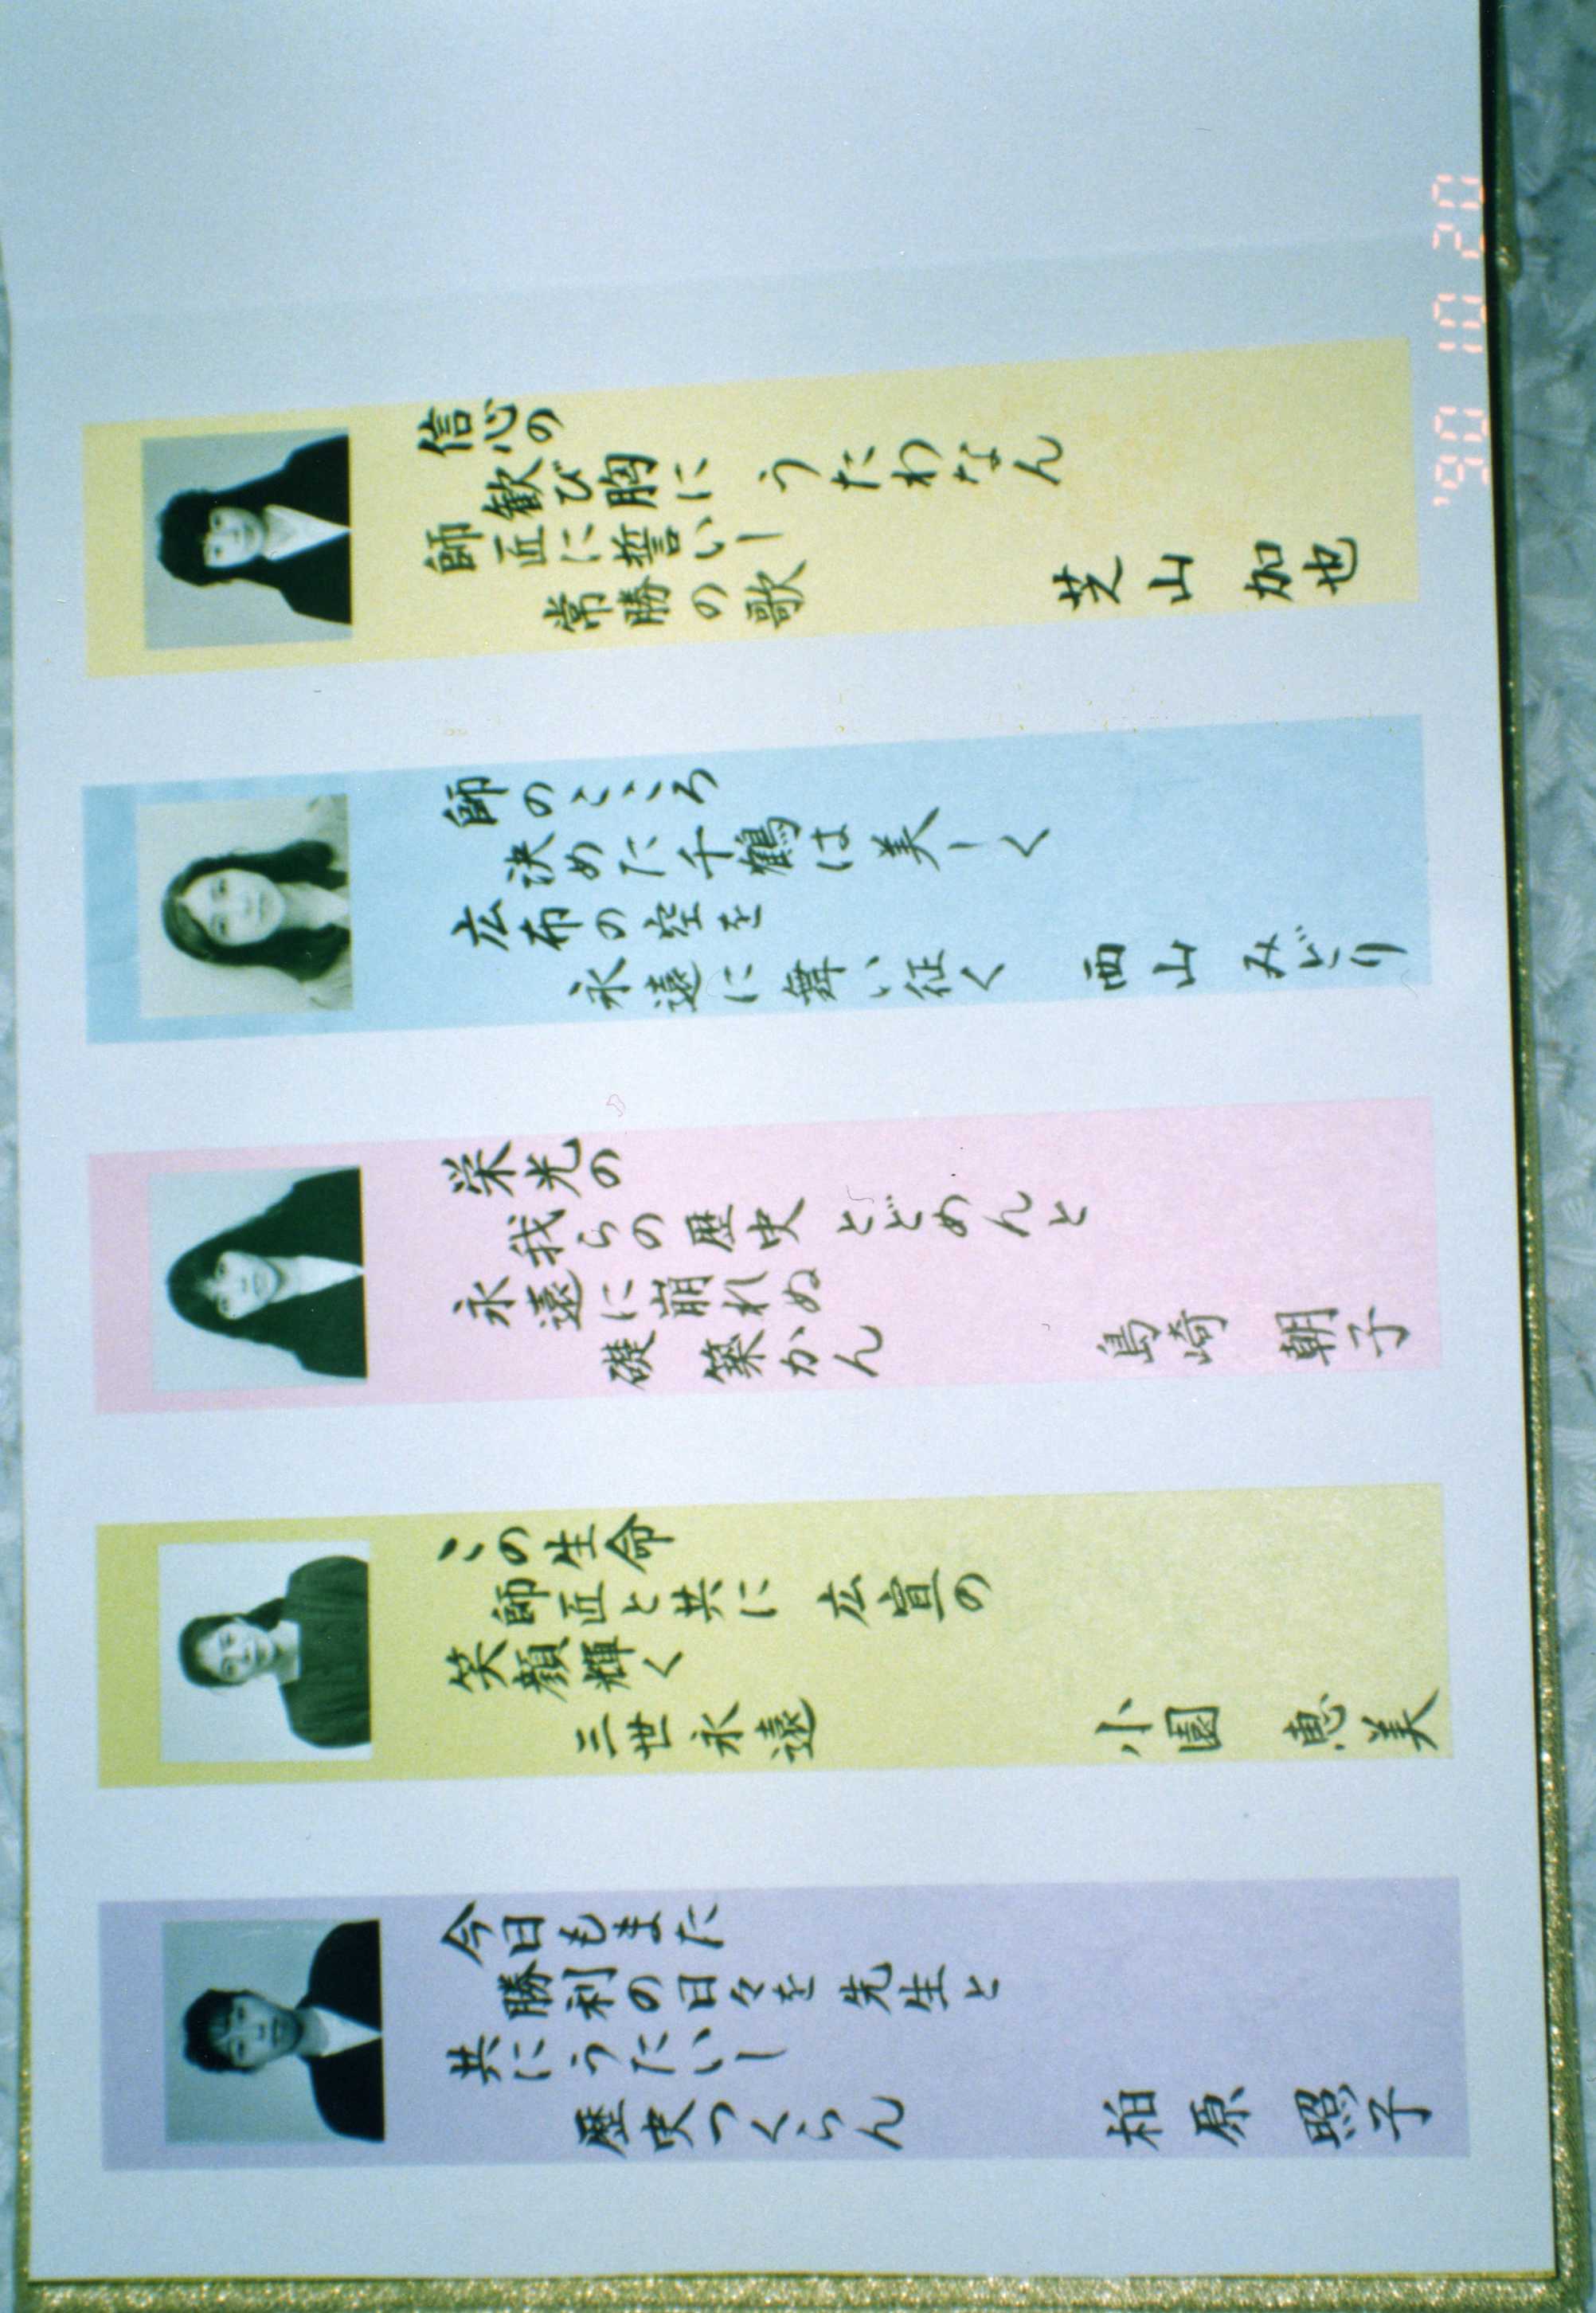 信心の
歓び胸に うたわなん
師匠に誓いし
常勝の歌
芝山 加也
師のこころ
決めた千鶴は美しく
広布の空を
永遠に舞い征く
西山 みどり
栄光の
我らの歴史 とどめんと
永遠に崩れぬ
礎 築かん
島崎 朝子
この生命
師匠と共に 広宣の
笑顔輝く
三世永遠
小園 恵美
今日もまた
勝利の日々を 先生と
共にうたいし
歴史つくらん
柏原 照子
'90 10 20